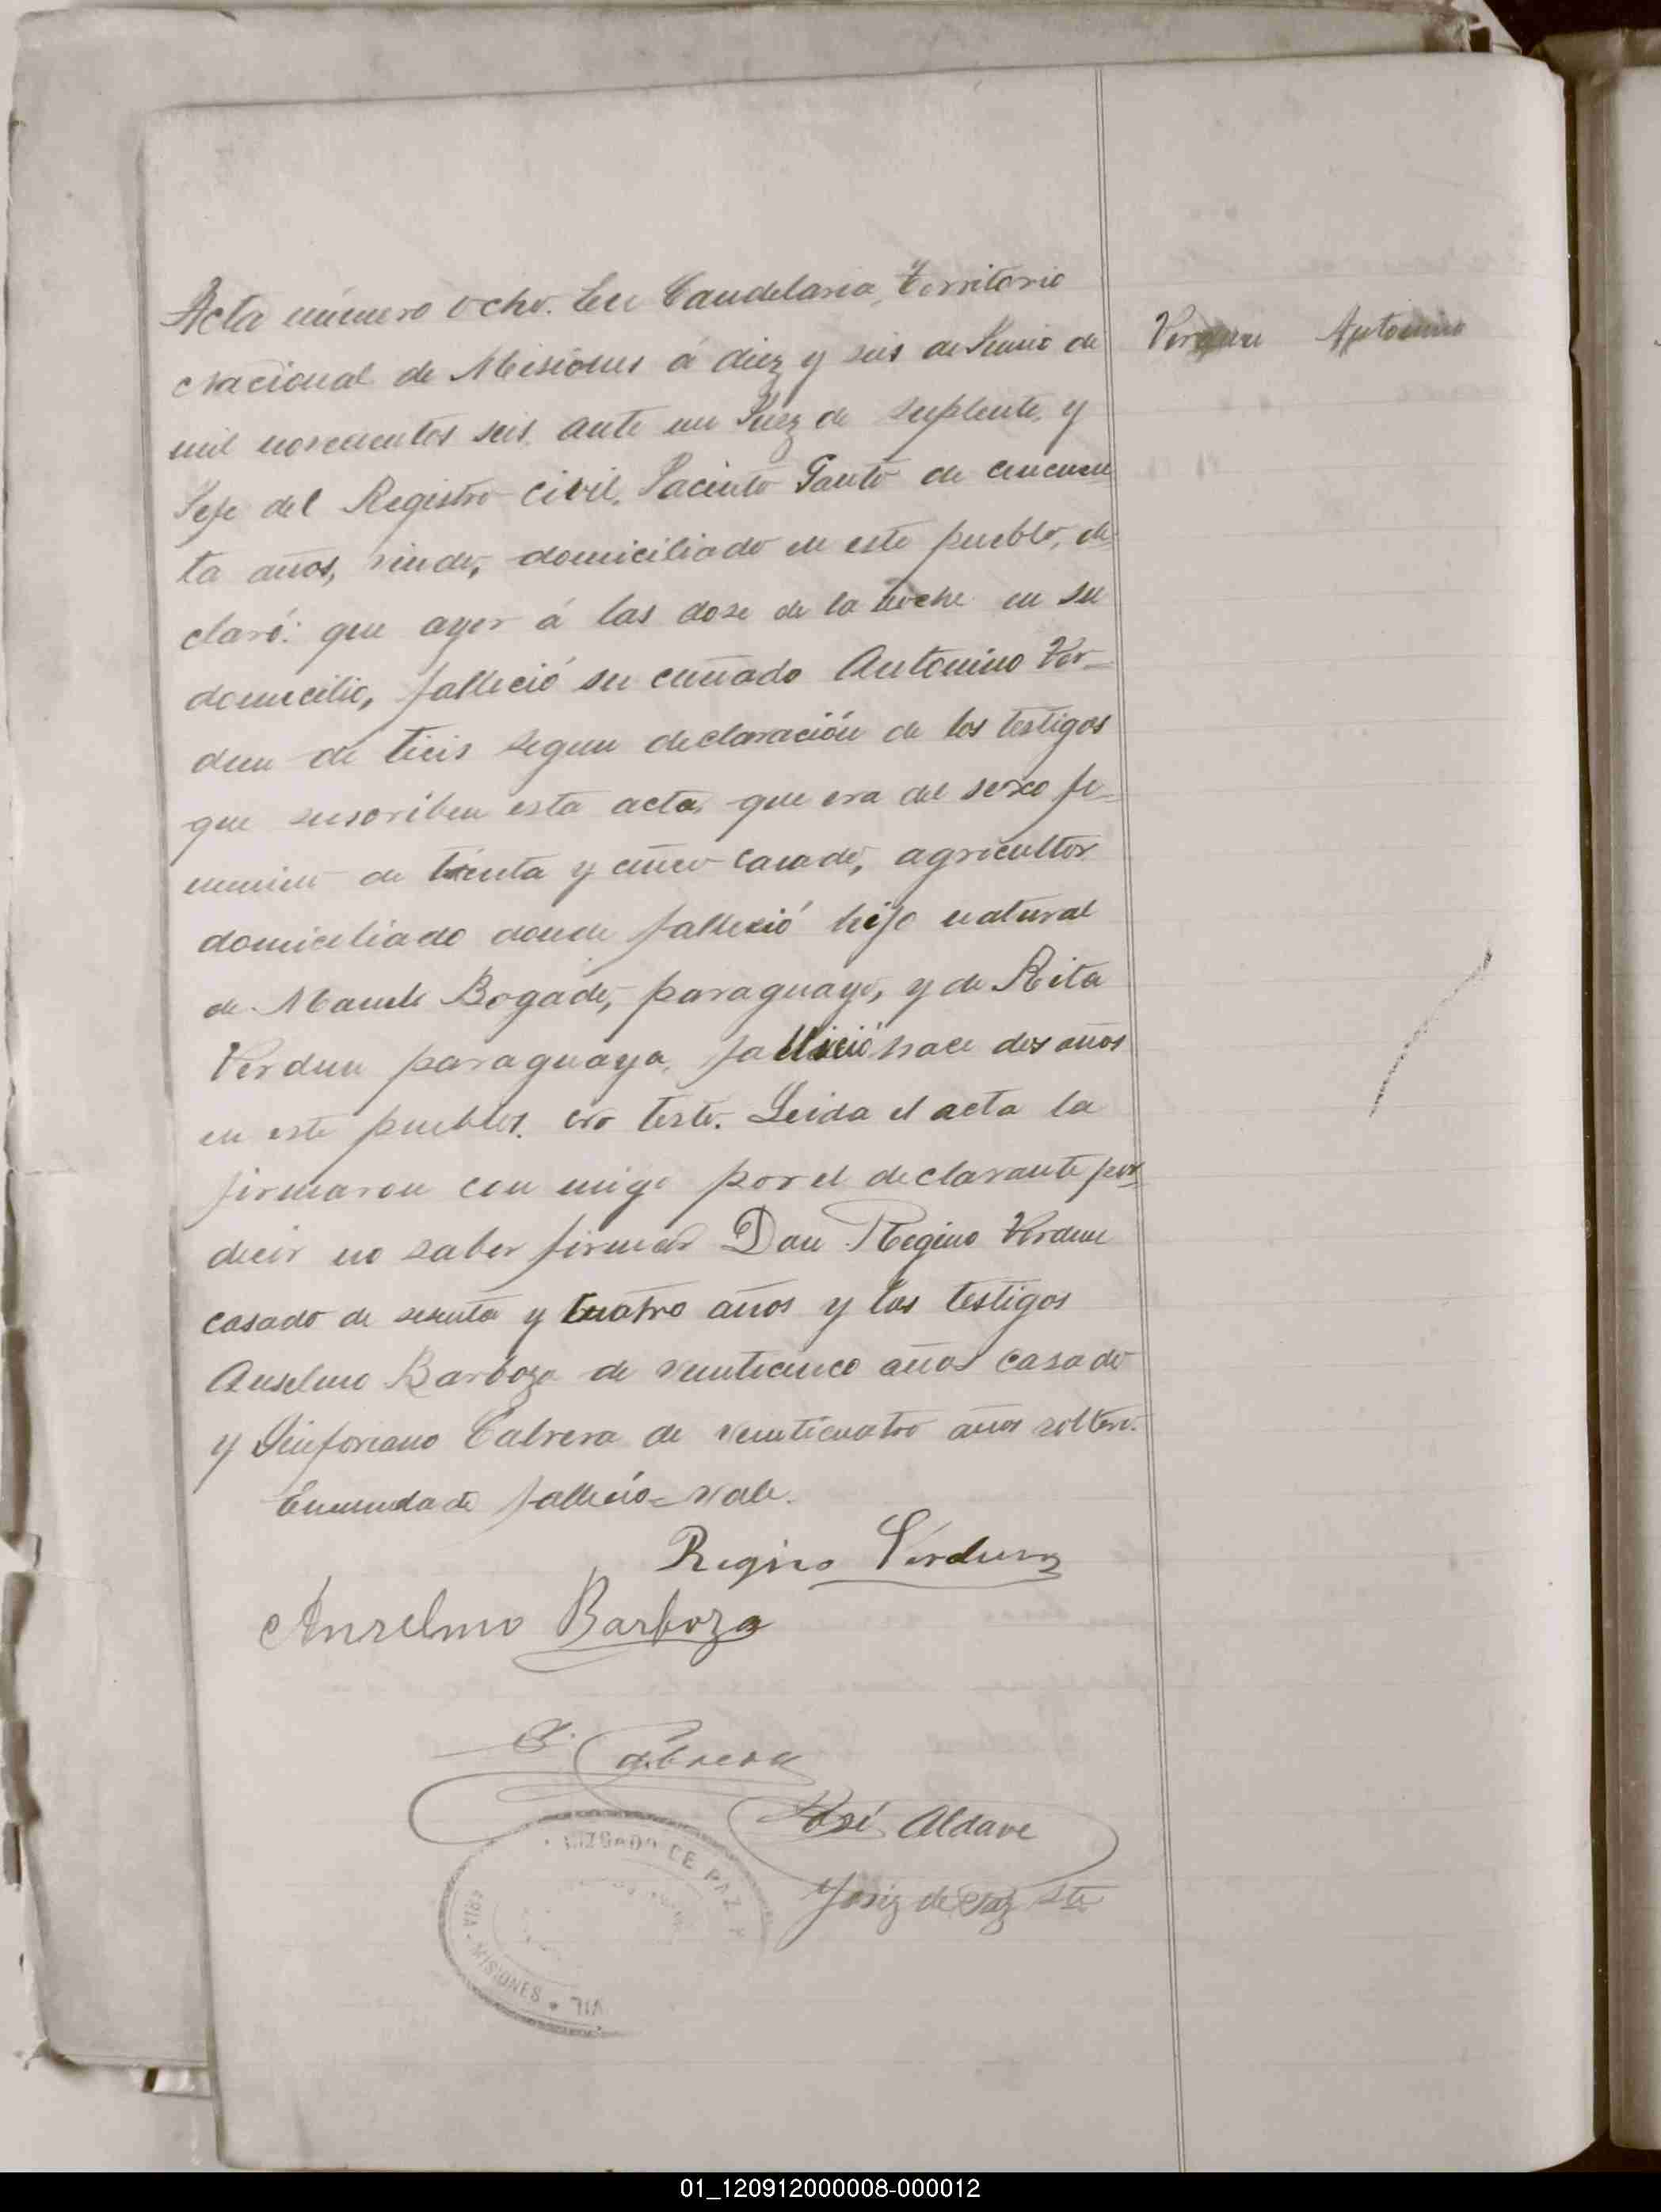 Acta número ocho. En Candelaria, Territorio
Verdun Antonino
Nacional de Misiones á diez y seis de Junio de
mil novecientos seis, ante mi Juez de suplente, y
Jefe del Registro Civil, Jacinto Panto de cincuen
ta años, viudo, domiciliado en este pueblo, de
claró: que ayer á las dose de la noche en su
domicilio, falleció su cuñado Antonino Ver-
dun de ticis segun declaración de los testigos
que suscriben esta acta, que era del sexo fe-
menino de trienta y cinco casado, agricultor
domiciliado donde fallexió hijo natural
de Bogado, paraguayo, y de Rita
Verdun paraguaya, falleció hace dos años
en este pueblos. no testo. Leida el acta la
firmaron con migo por el declarante por
decir no saber firmar Don Regino Verdun
casado de sesenta y cuatro años y los testigos
Anselmo Barboza de veinticinco años casado
y Sinforiano Cabrera de veinticuatro años soltero.
Enmendado falleció = vale.
Regino Verdun
Anselmo Barboza
S. Cabrera
José Aldave
Juez de Paz Ste
JUZGADO DE PAZ Y
MISIONES
01_120912000008-000012